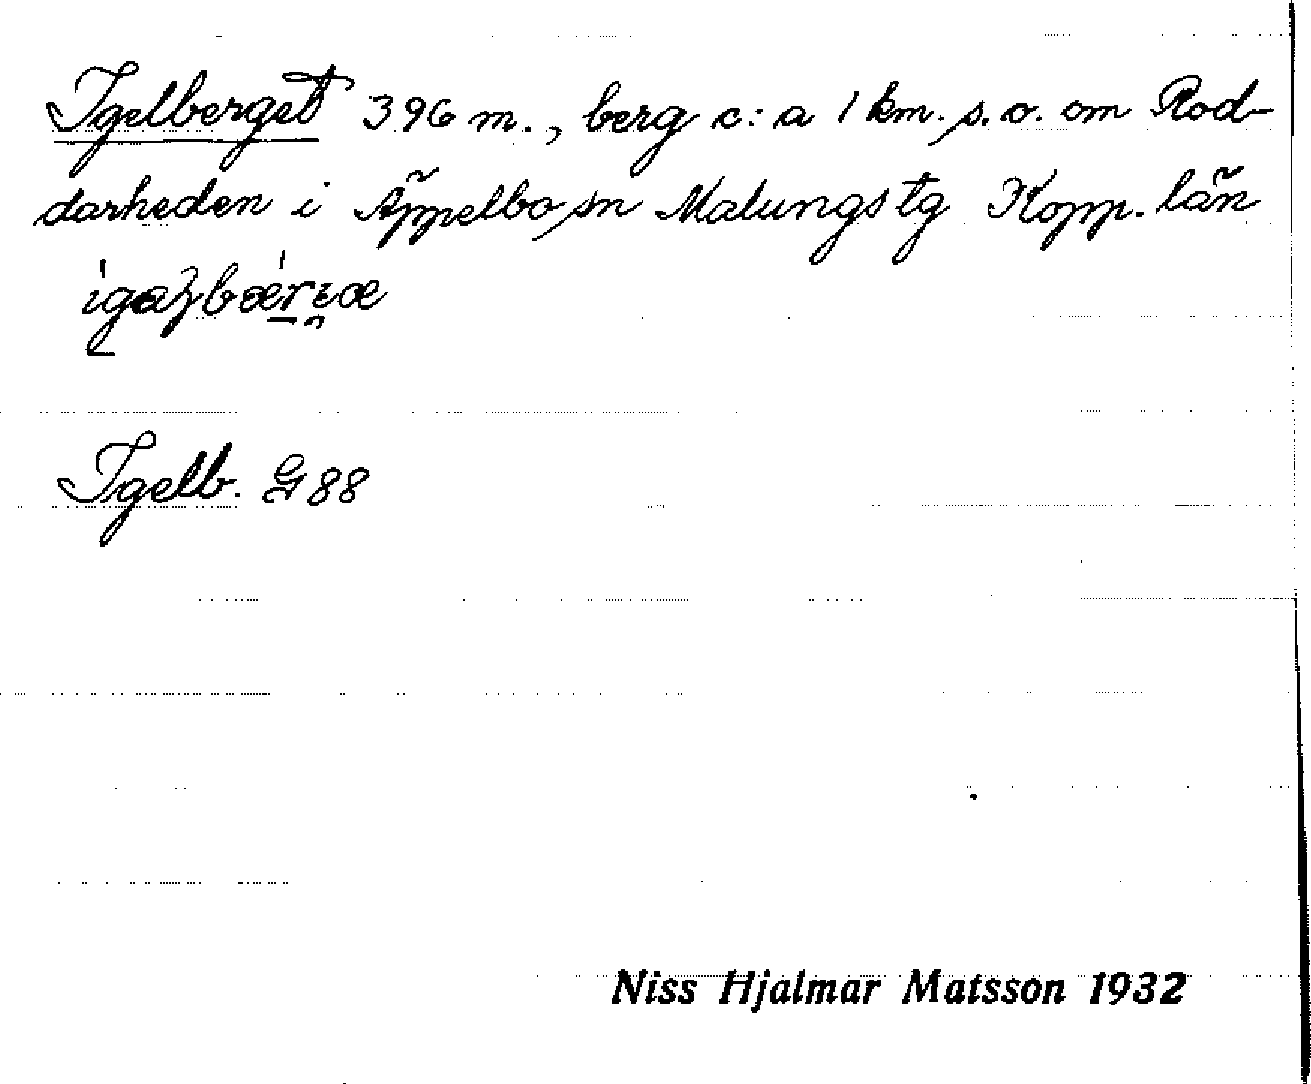 Igelberget 396 m., berg c:a 1 km. s.o. om Rod-
darheden i Äppelbo sn Malungs tg Kopp. län
Igelb. G88
Niss Hjalmar Matsson 1932